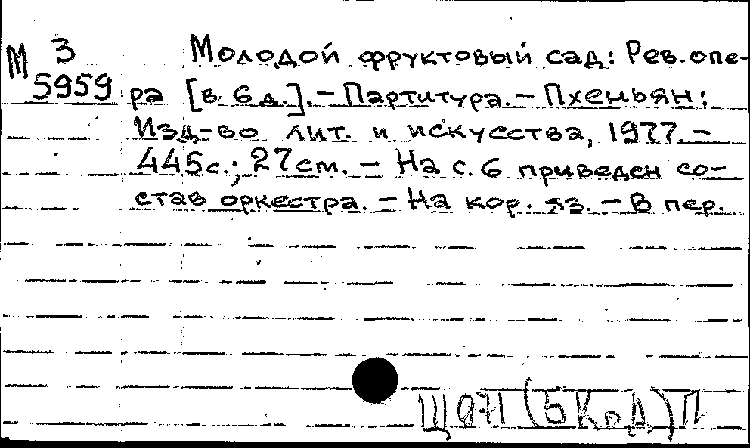 М 3 5959
Молодой фруктовый сад: Рев. опе-
ра [в 6 д.]. – Партитура. – Пхеньян:
Изд-во лит. и искусства, 1977. –
445с.; 27см. – На с. 6 приведен со-
став оркестра. – На кор. яз. – В пер.
Щ971(5КрД)П